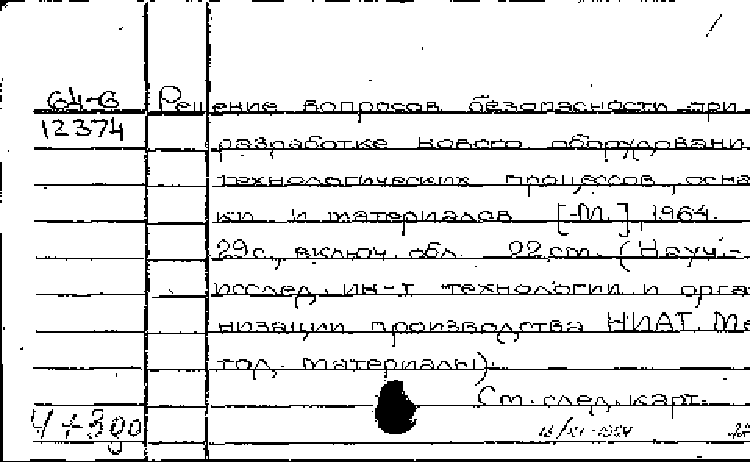 64-6 Решение вопросов безопасности при
12374 разработке нового оборудовани
технологических процессов, осна
ки и материалов [-М.], 1964.
29 с., включ. обл. 22 см. (Науч.-
исслед. ин-т технологии и орга
низации производства НИАТ. Ме
тод. материалы).
См. след. карт.